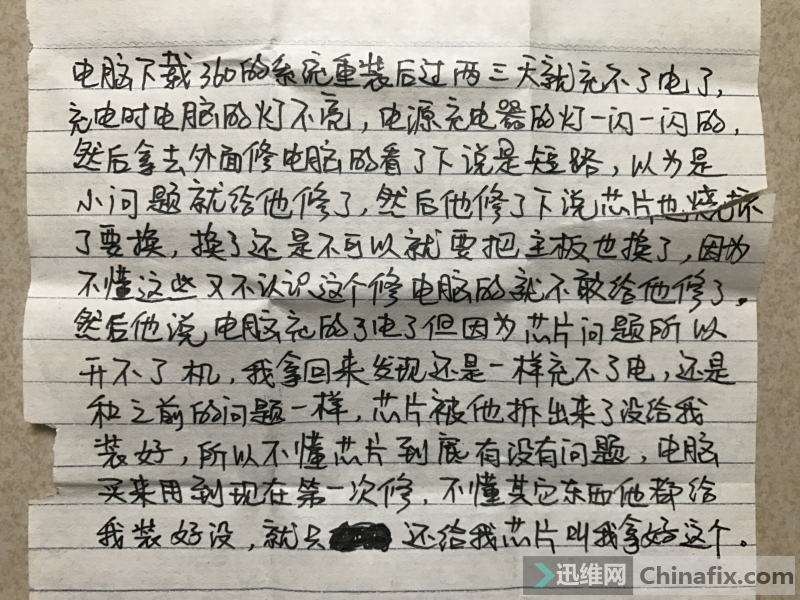 电脑下载360的系统重装后过两三天就充不了电了，
充电时电脑的灯不亮，电源充电器的灯一闪一闪的，
然后拿去外面修电脑的看了下说是短路，以为是
小问题就给他修了，然后他修了下说芯片也烧坏
了要换，换了还是不可以就要把主板也换了，因为
不懂这些又不认识这个修电脑的就不敢给他修了。
然后他说电脑充的了电了但因为芯片问题所以
开不了机，我拿回来发现还是一样充不了电，还是
和之前的问题一样，芯片被他拆出来了没给我
装好，所以不懂芯片到底有没有问题，电脑
买来用到现在第一次修，不懂其它东西他都给
我装好没，就只 还给我芯片叫我拿好这个。
迅维网 Chinafix.com